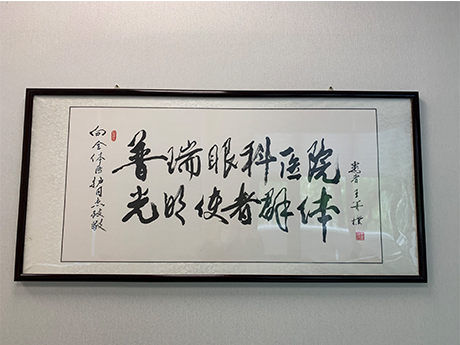 向全体医护员致敬
普瑞眼科医院
光明使者群体